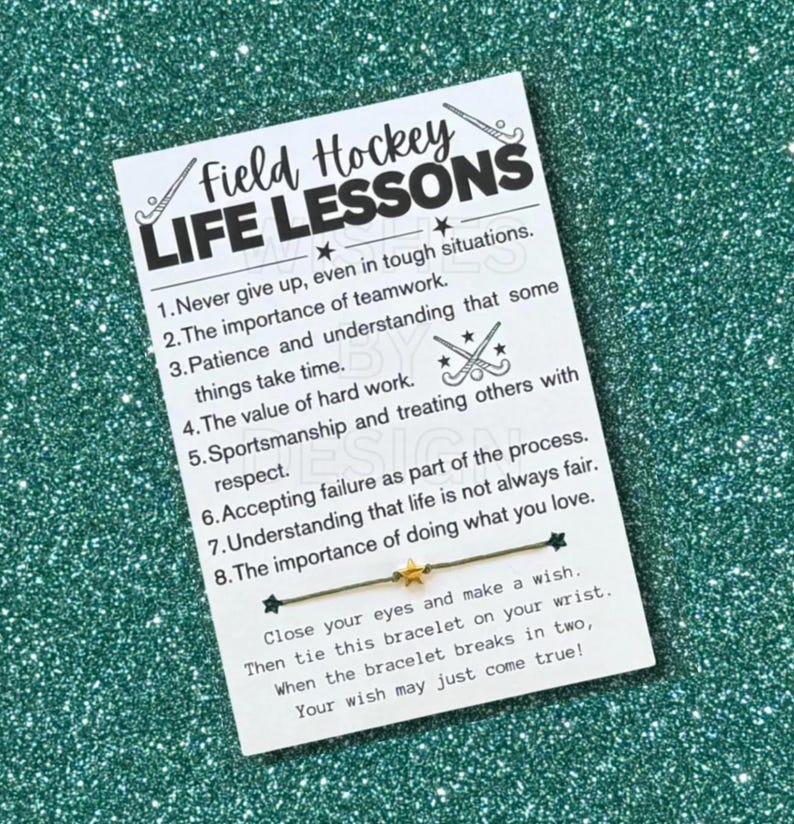 Field Hockey
LIFE LESSONS
1.Never give up, even in tough situations.
2.The importance of teamwork.
3.Patience and understanding that some
things take time.
4.The value of hard work.
5.Sportsmanship and treating others with
respect.
6.Accepting failure as part of the process.
7.Understanding that life is not always fair.
8.The importance of doing what you love.
Close your eyes and make a wish.
Then tie this bracelet on your wrist.
When the bracelet breaks in two,
Your wish may just come true!
WISHES
BY
DESIGN